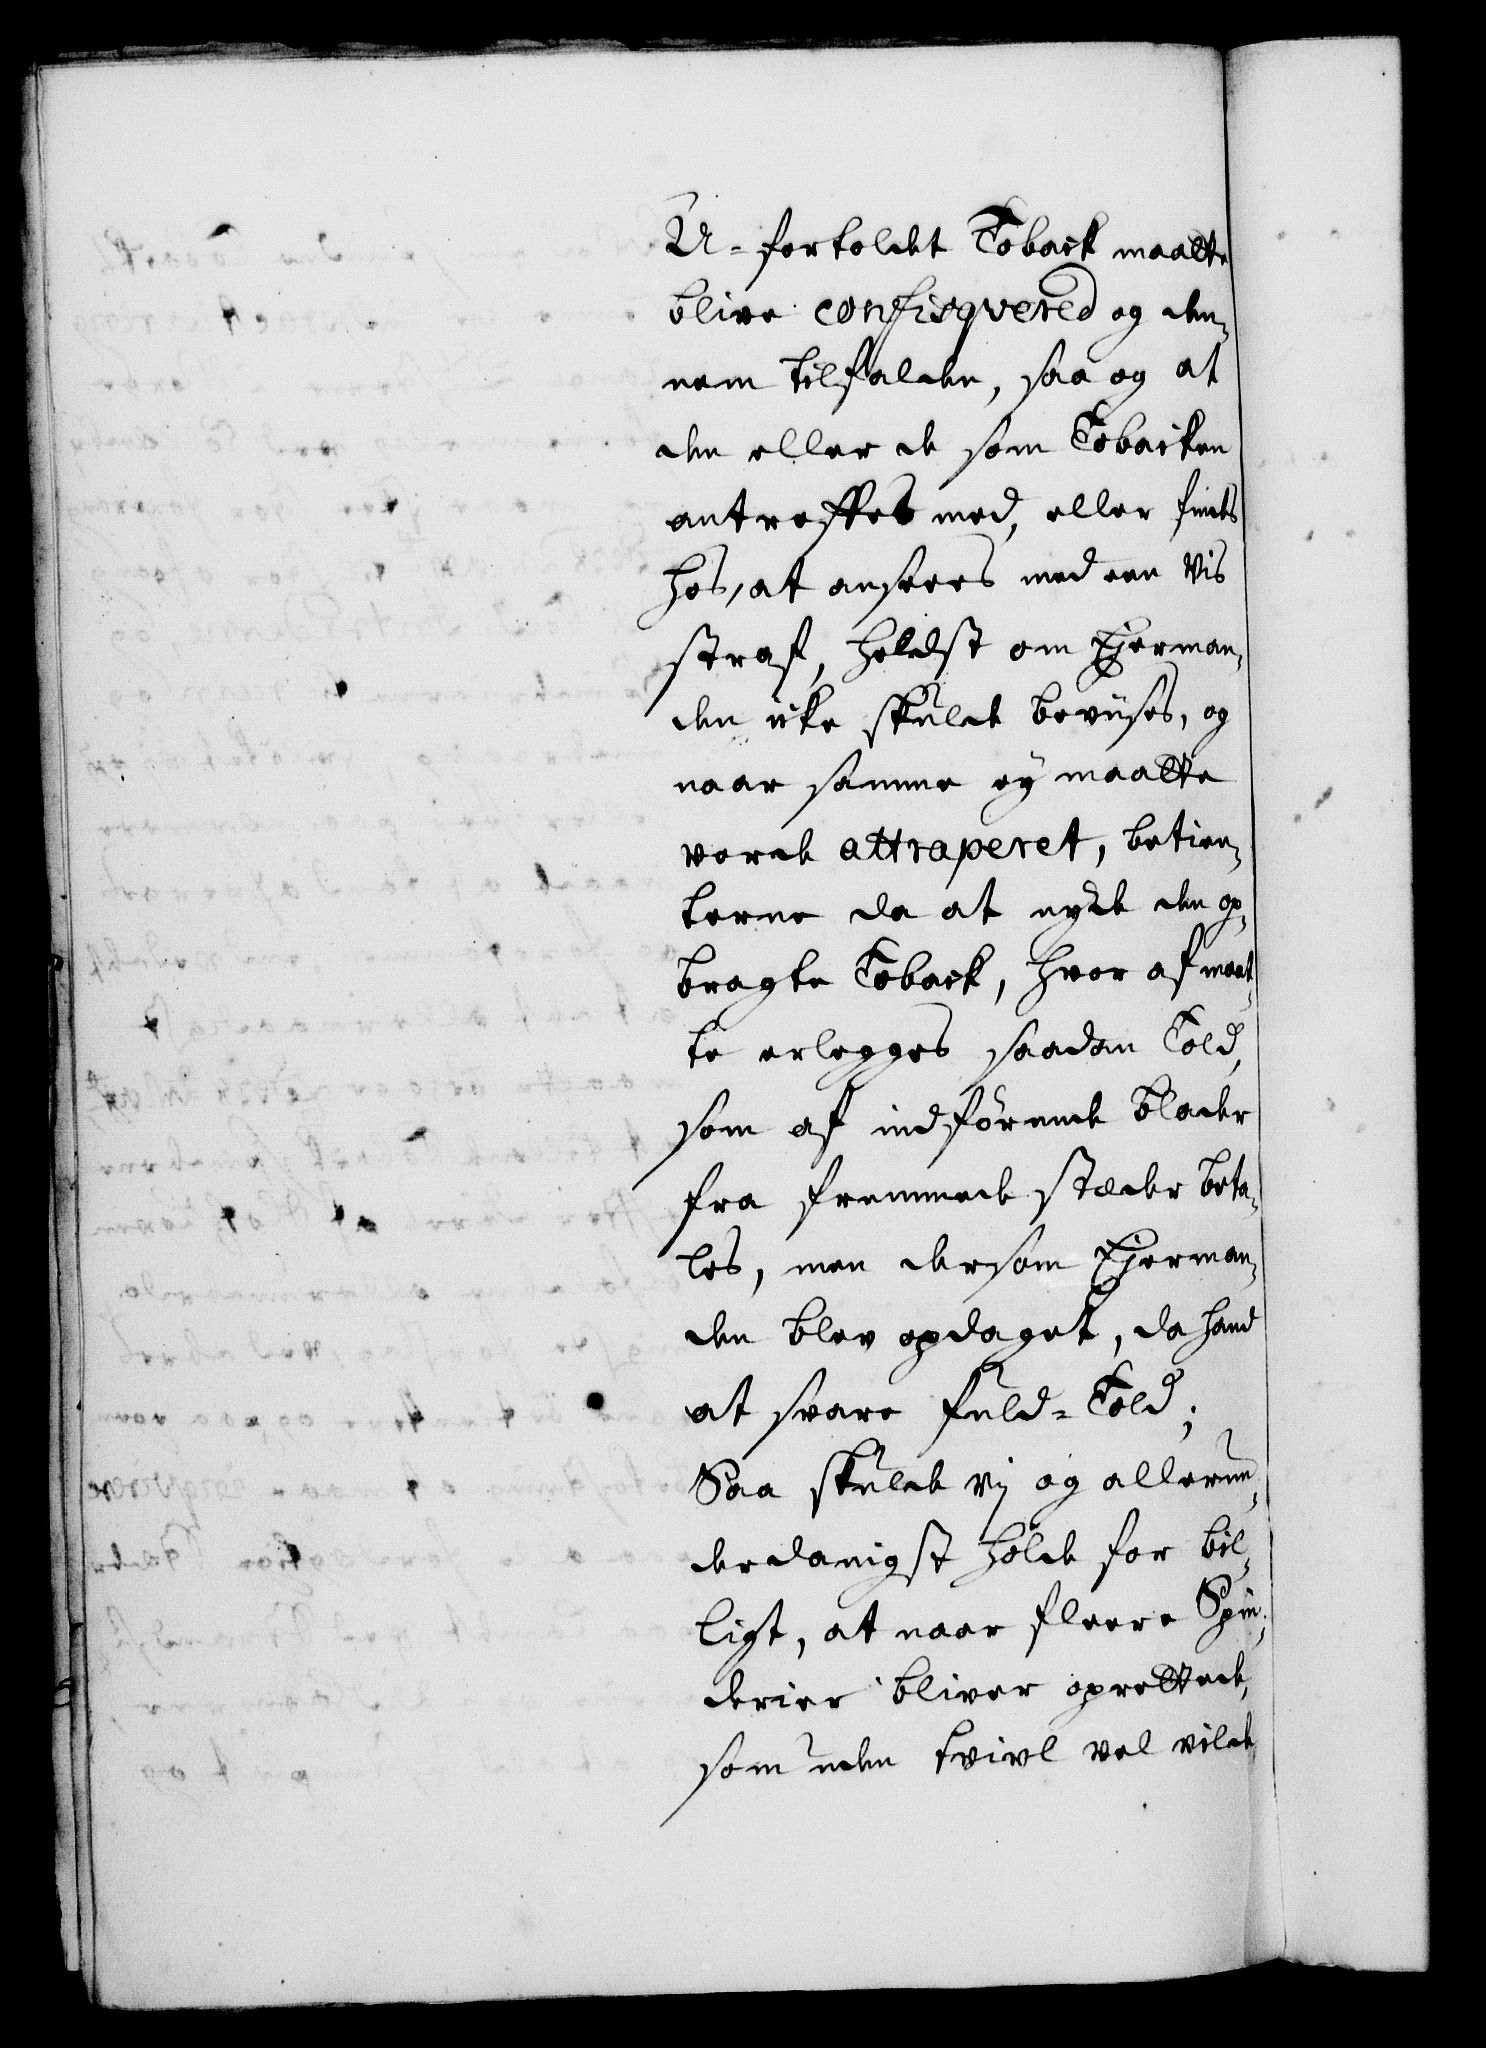 U-fortoldet Toback maatte
blive confisqvered og den¬
nem tilfalden, saa og at
den eller de som Tobacken
antreffes med, eller findes
hos, at ansees med een vis
straf, heldst om Ejerman¬
den icke skulde beviises, og
naar samme ey maatte
vorde attraperet, betien¬
terne da at nyde den op¬
bragte Toback, hvor af maat¬
te erlegges saadan Told,
som af indförende blader
fra fremmede stæder beta¬
les, men dersom Ejerman¬
den blev opdaget, da hand
at svare fuld-Told;
Saa skulde vj og allerun¬
derdanigst holde for bil¬
ligt, at naar fleere Spin¬
derier bliver oprettede,
som uden tvivl vel vilde